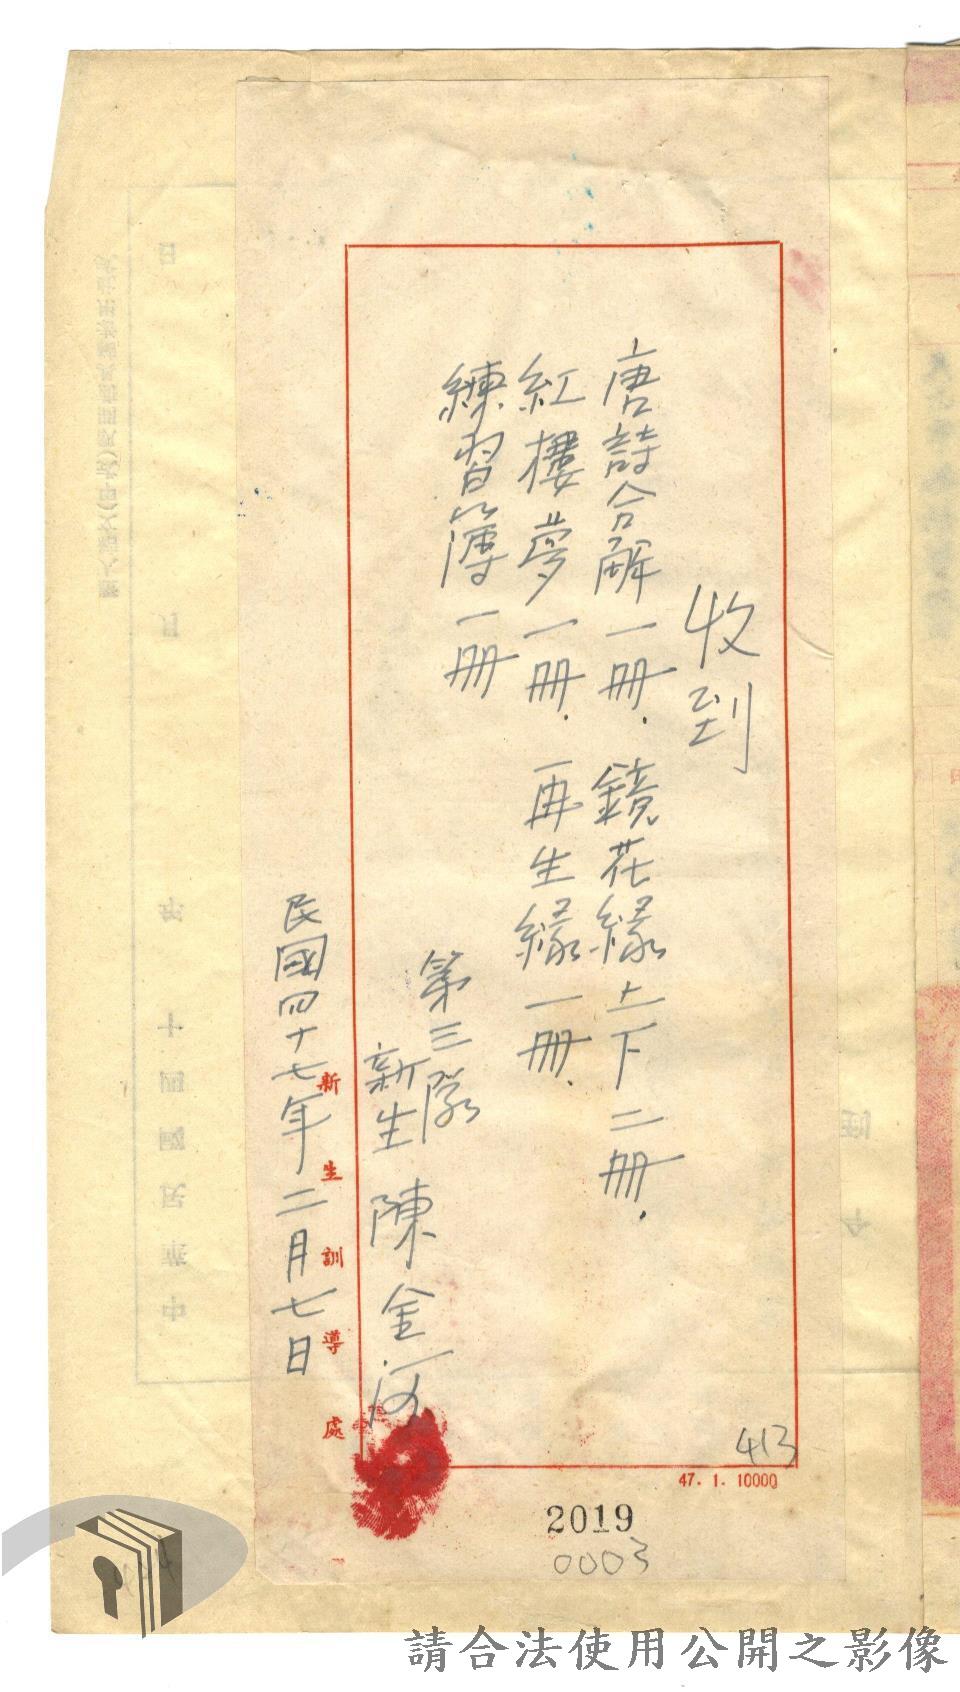 收到
唐詩合解一冊．鏡花緣上下二冊．
紅樓夢一冊．再生緣一冊．
練習簿一冊
第三隊
新生 陳金河
民國四十七年二月七日
新生訓導處
413
47. 1. 10000
2019
0003
請合法使用公開之影像